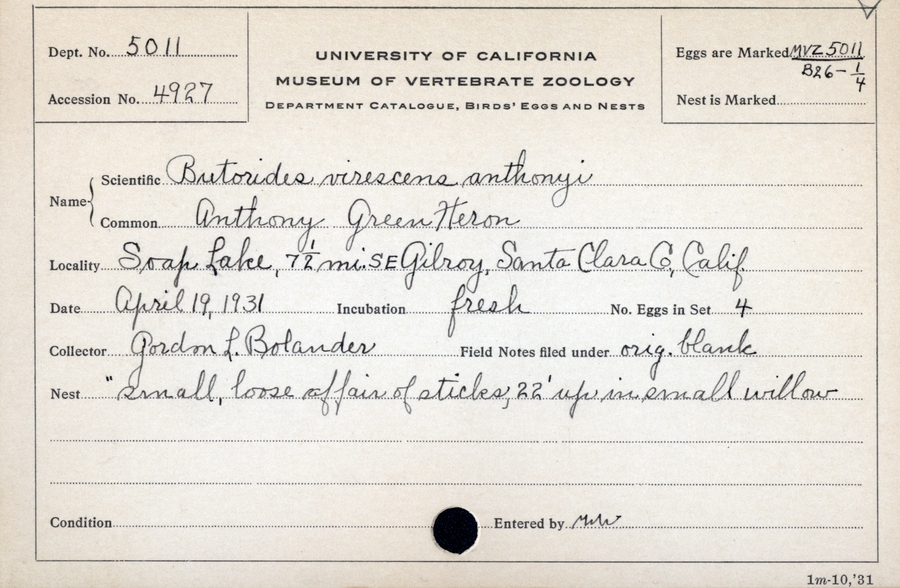 Dept. No. 5011
UNIVERSITY OF CALIFORNIA
MUSEUM OF VERTEBRATE ZOOLOGY
DEPARTMENT CATALOGUE, BIRDS' EGGS AND NESTS
Eggs are Marked MVZ 5011
B26-1/4
Accession No. 4927
Nest is Marked
Name { Scientific Butorides virescens anthonyi
Common Anthony Green Heron
Locality Soap Lake, 7 1/2 mi. SE Gilroy, Santa Clara Co., Calif.
Date April 19, 1931 Incubation fresh No. Eggs in Set 4
Collector Gordon L. Bolander Field Notes filed under orig. blank
Nest "small, loose affair of sticks, 22' up in small willow
Condition Entered by
1m-10,'31